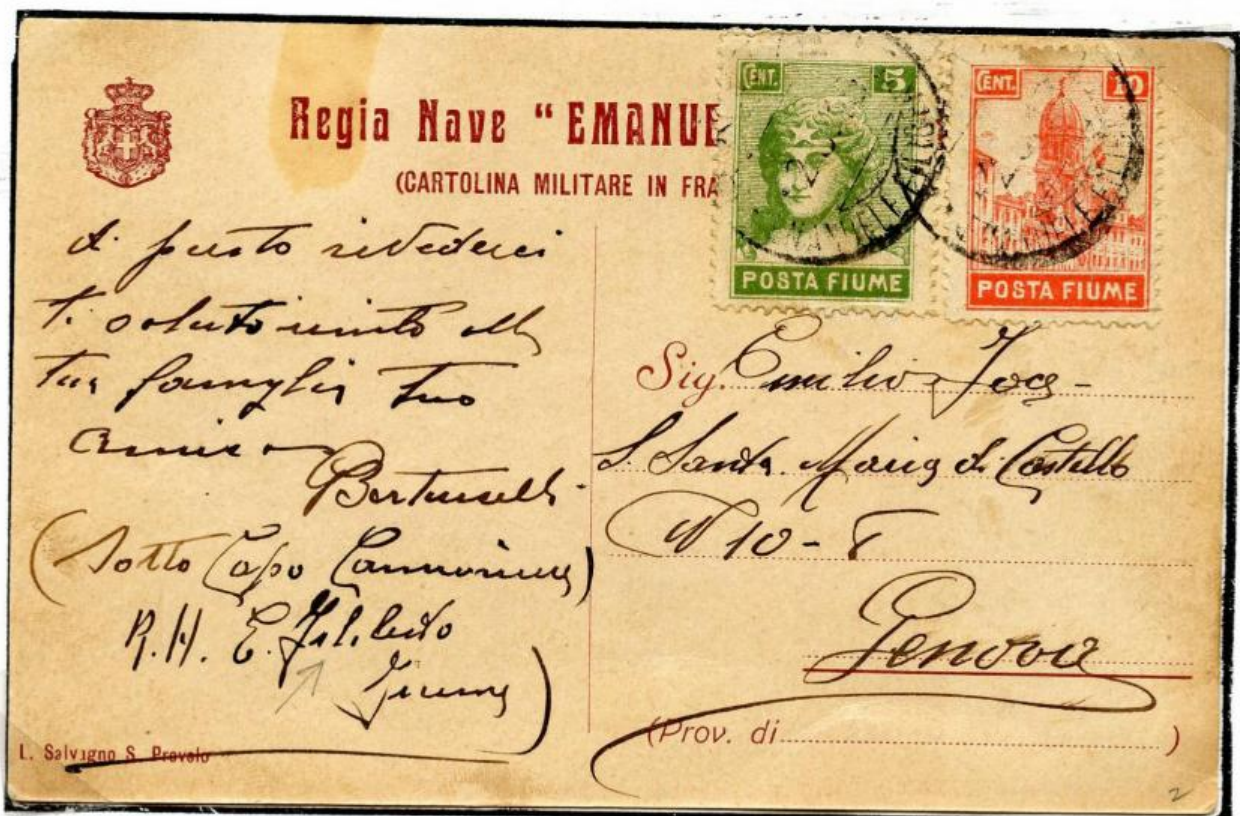 Regia Nave "EMANUE
(CARTOLINA MILITARE IN FRA
CENT. 5
POSTA FIUME
CENT. 10
POSTA FIUME
A presto rivederci
ti saluto unito alla
tua famiglia tuo
amico
(Sotto Capo Cannoniere)
R.N. E. Filiberto
Fiume)
L. Salvagno S. Provolo
Sig. Emilio
S. Santa Maria di Castello
N 10 -
Genova
(Prov. di )
2